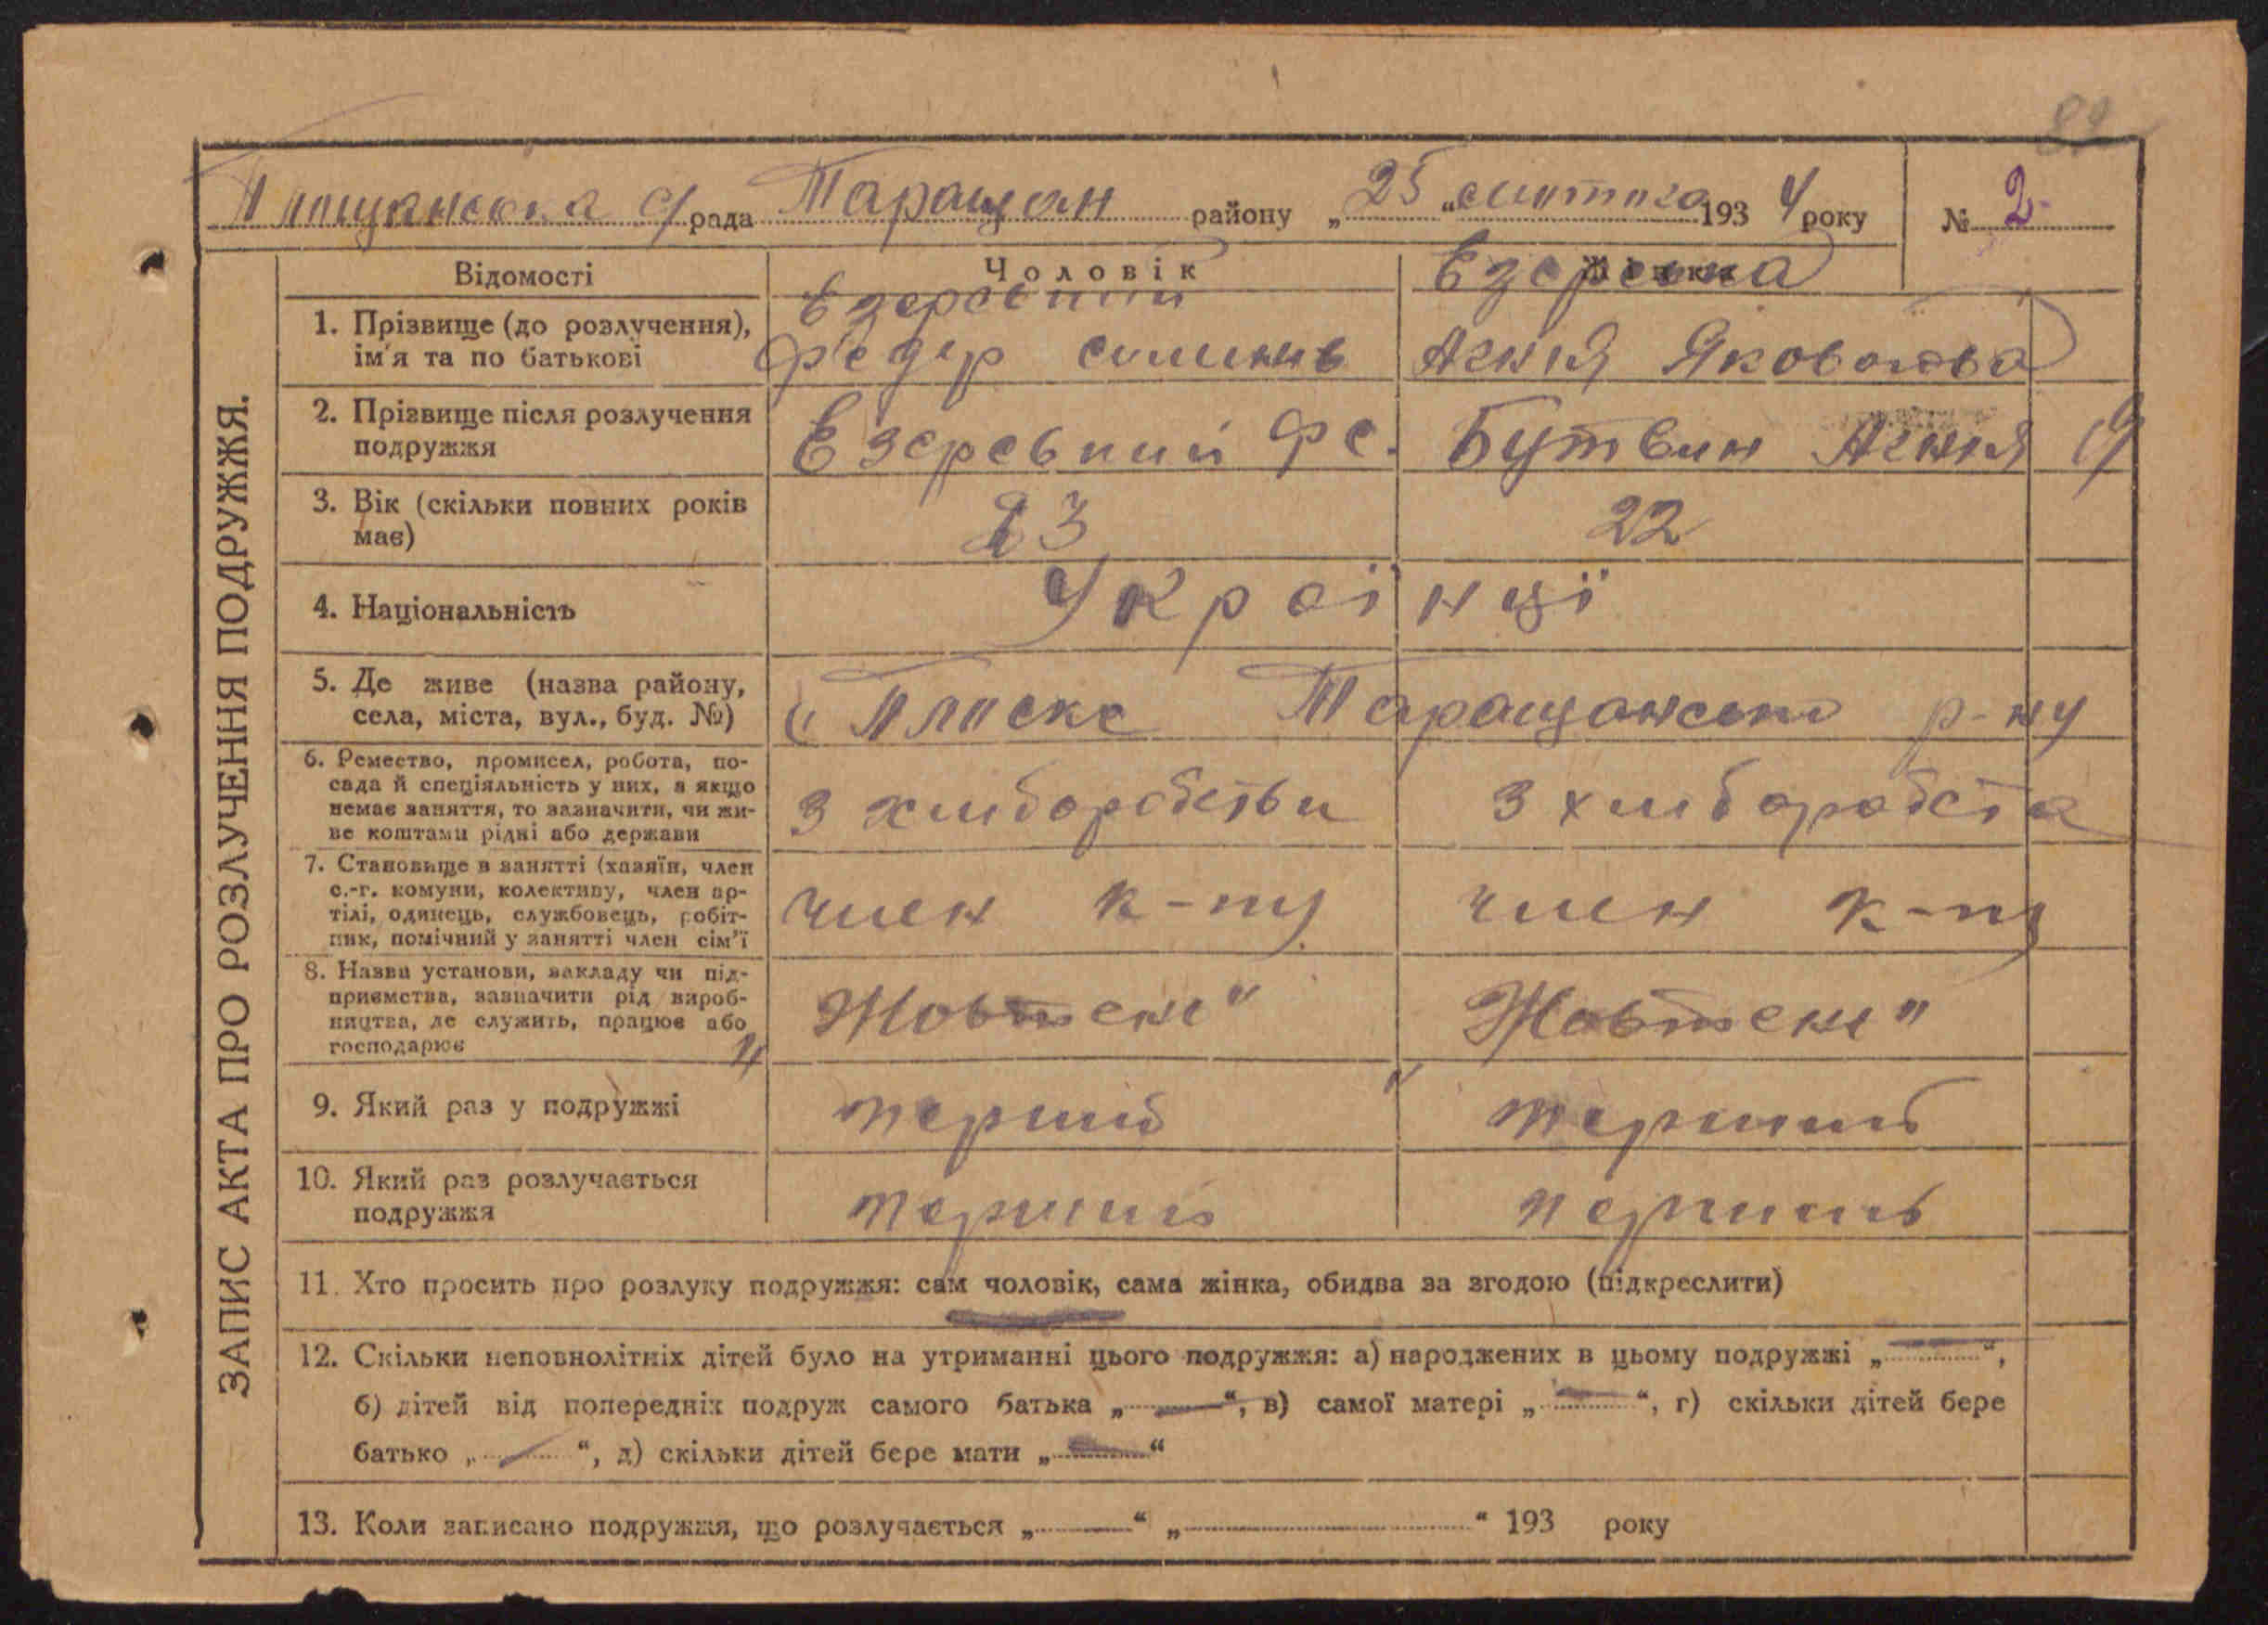 82
Плищанська С/рада Таращан району „25“ лютого 1934 року № 2
Відомості Чоловік Жінка
1. Прізвище (до розлучення), ім'я та по батькові
Езерський Езерська
Федір Агнія Яковлева
2. Прізвище після розлучення подружжя
Езерський Фе. Бутвин Агнія Я
3. Вік (скільки повних років має)
23 22
4. Національність
Украінці
5. Де живе (назва району, села, міста, вул., буд. №)
с Плиске Таращансько р-ну
6. Ремество, промисел, робота, по-
сада й спеціяльність у них, а якщо
немає заняття, то зазначити, чи жи-
ве коштами рідні або держави
З хліборобства З хлібороботва
7. Становище в занятті (хазяїн, член
с.-г. комуни, колективу, член ар-
тілі, одинець, службовець, робіт-
ник, помічний у занятті член сім'ї
член к-пу член к-пу
8. Назва установи, закладу чи під-
приємства, зазначити рід вироб-
ництва, де служить, працює або
господарює
„Жовтень“ „Жовтень“
9. Який раз у подружжі
перший перший
10. Який раз розлучається
подружжя
перший перший
11. Хто просить про розлуку подружжя: сам чоловік, сама жінка, обидва за згодою (підкреслити)
12. Скільки неповнолітніх дітей було на утриманні цього подружжя: а) народжених в цьому подружжі „—“,
б) дітей від попередніх подруж самого батька „—“, в) самої матері „—“, г) скільки дітей бере
батько „—“, д) скільки дітей бере мати „—“
13. Коли записано подружжя, що розлучається „ “ „ “ 193 року
ЗАПИС АКТА ПРО РОЗЛУЧЕННЯ ПОДРУЖЖЯ.